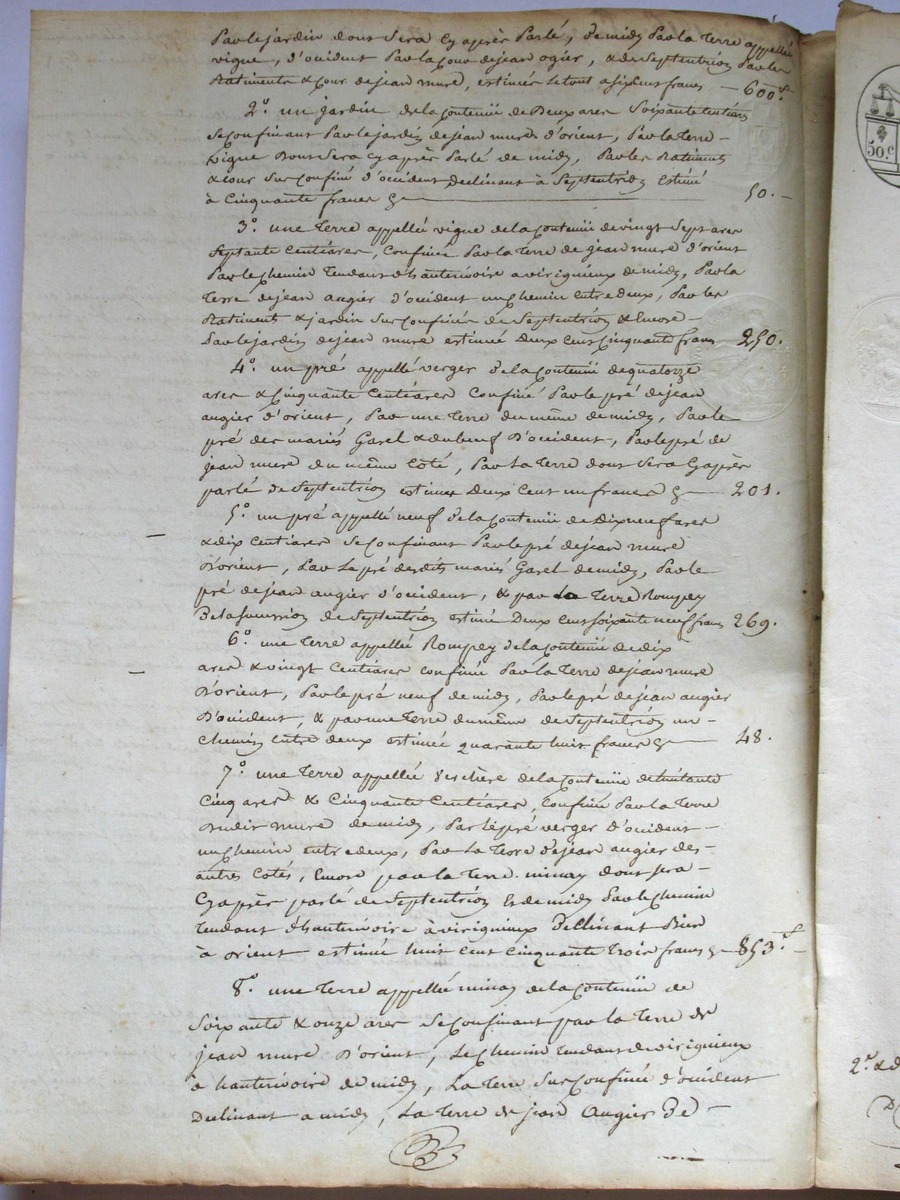 Par le jardin dont Sera cy après Parlé, de midy Par la Terre appellée
vigne, d'occident Par la Cour de jean ogier, & de Septentrion Par les
Batiments & Cour de jean mure, estimées le tout a six Cens francs — 600.f
2.º un jardin de la Contenüe de Deux ares Soixante centiares
Se Confinant Par le jardin de jean mure d'orient, Par la Terre —
vigne Dont Sera cy après Parlé de midy, Par les Batiments
& cour Sus Confiné d'occident Declinant à Septentrion Estimé
à Cinquante francs — 50. —
3.º une Terre appellée vigne de la Contenüe de vingt Sept ares
Septante Centiares, Confinée Par la Terre de jean mure d'orient
Par le Chemin Tendant d'hauterivoire a virignieux de midy, Par la
Terre de jean augier d'occident un Chemin entre deux, Par les
Batiments & jardin Sus Confinés de Septentrion & Encore —
Par le jardin de jean mure estimée deux cens Cinquante francs 250.
4.º un pré appellé verger de la Contenüe de quatorze
ares & Cinquante Centiares Confiné Par le pré de jean
augier d'orient, Par une Terre du même de midy, Par le
pré des mariés Garel & dubeuf d'occident, Par le pré de
jean mure du même Coté, Par La Terre dont Sera Cy après
parlé de Septentrion estimé Deux Cent un francs — 201.
5.º un pré appellé neuf de la Contenüe de Dix neuf ares
& dix Centiares Se Confinant Par le pré de jean mure
D'orient, Par Le pré desdits mariés Garel de midy, Par le
pré de jean augier d'occident, & par la Terre Rompey
De la Succession de Septentrion estimé Deux Cens Soixante neuf francs 269.
6.º une Terre appellée Rompey de la Contenüe de dix
ares & vingt Centiares Confinée Par la Terre de jean mure
D'orient, Par le pré neuf de midy, Par le pré de jean augier
D'occident, & par une Terre du même de Septentrion un —
Chemin Entre deux estimée quarante huit francs — 48.
7.º une Terre appellée de la Contenüe de
Cinq ares & Cinquante Centiares, Confinée Par la Terre
Dudit mure de midy, Par le pré verger d'occident —
un Chemin entre deux, Par La Terre de jean augier des —
autres Cotés, Encore par la Terre minay dont Sera —
Cy après parlé de Septentrion & de midy Par le Chemin
Tendant d'hauterivoire à virignieux Déclinant Bien
à orient estimée huit Cent Cinquante Trois francs — 853.f —
8.º une Terre appellée minay de la Contenüe de
Soixante & onze ares Se Confinant par la Terre de
jean mure D'orient, Le Chemin Tendant de virignieux
à hauterivoire de midy, La Terre Sus Confinée d'occident
Declinant a midy, La Terre de jean Augier De —
50.c
2.e & d